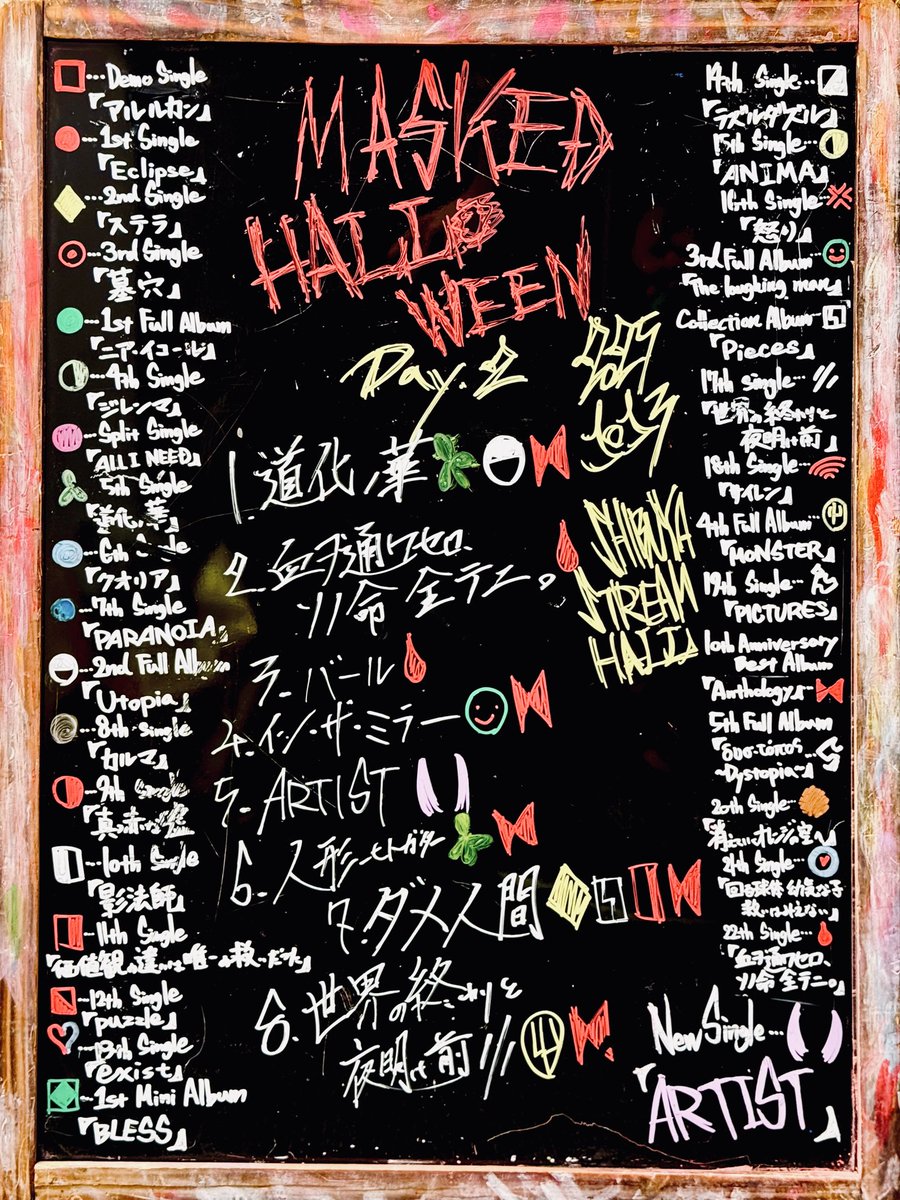 MASKED
HALLO
WEEN
Day. 2
2025
10.13
SHIBUYA
STREAM
HALL
1. 道化ノ華
2. 血ヲ通ワセロ、
ソノ命 全テニ。
3. バール
4. イン・ザ・ミラー
5. ARTIST
6. 人形
7. ダメ人間
8. 世界の終わりと
夜明け前
…Demo Single
『アルルカン』
…1st Single
『Eclipse』
…2nd Single
『ステラ』
…3rd Single
『墓穴』
…1st Full Album
『ニア・イコール』
…4th Single
『ジレンマ』
…Split Single
『ALL I NEED』
…5th Single
『道化ノ華』
…6th Single
『クオリア』
…7th Single
『PARANOIA』
…2nd Full Album
『Utopia』
…8th Single
『カルマ』
…9th Single
『真っ赤な嘘』
…10th Single
『影法師』
…11th Single
『価値観の違いは唯一の救いだった』
…12th Single
『puzzle』
…13th Single
『exist』
…1st Mini Album
『BLESS』
14th Single…
『ラズルダズル』
15th Single…
『ANIMA』
16th Single…
『怒り』
3rd Full Album…
『The laughing man』
Collection Album…
『Pieces』
17th single…
『世界の終わりと
夜明け前』
18th Single…
『サイレン』
4th Full Album…
『MONSTER』
19th Single…
『PICTURES』
10th Anniversary
Best Album
『Anthology』…
5th Full Album
~Dystopia~』
20th Single…
21th Single…
『回る球体 幼気な子
救いはみえない』
22th Single…
『血ヲ通ワセロ、
ソノ命 全テニ。』
New Single…
『ARTIST』